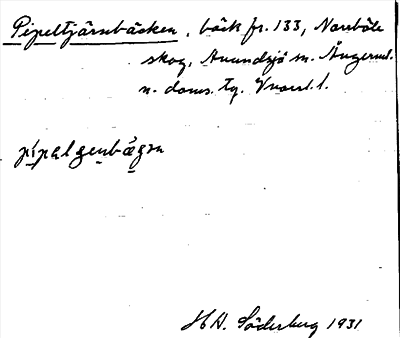 Pipeltjärnbäcken, bäck fr. 133, Norrböle
skog, Anundsjö sn. Ångerml.
n. doms. Tg.
pipalgenbägon
H W. Söderberg 1931